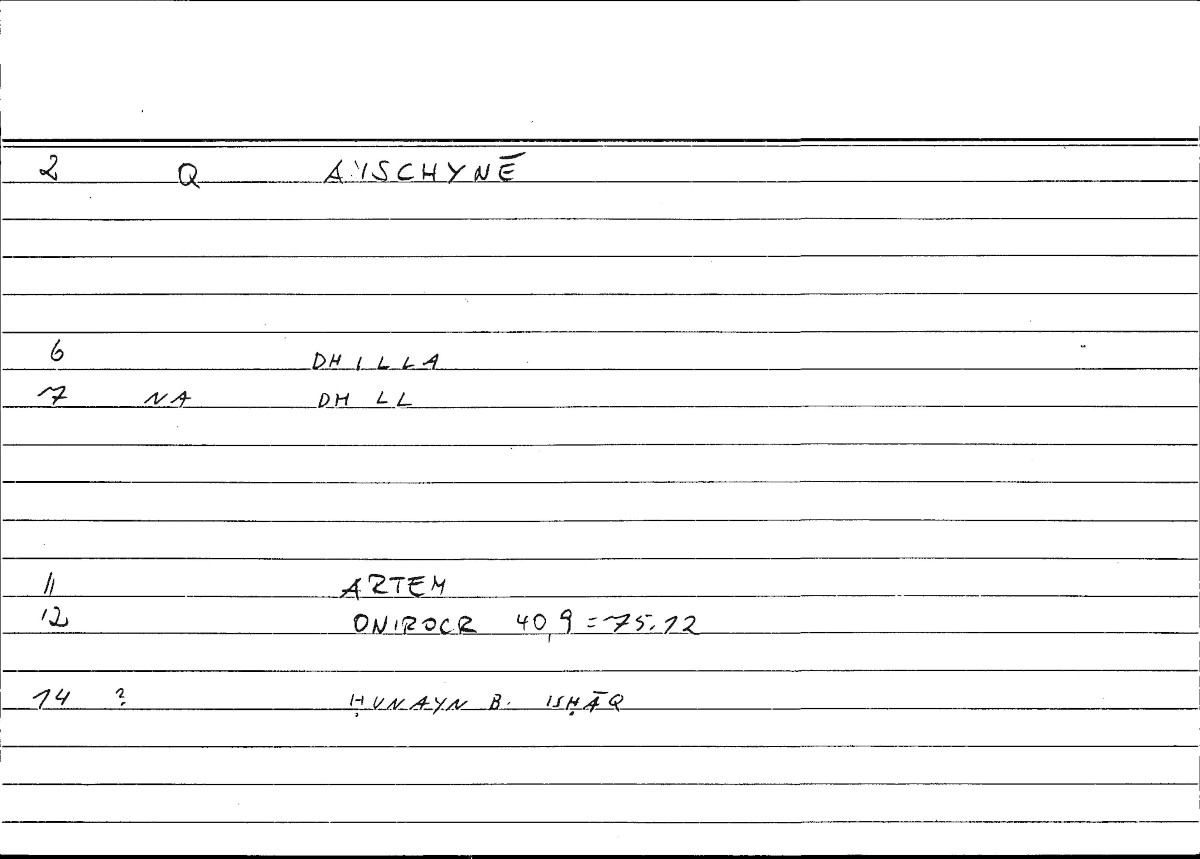 2 Q A'ISCHYNĒ
6 DHILLA
7 NA DH LL
11 ARTEM
12 ONIROCR 40,9=75.12
14 ? ḤUNAYN B. ISḤĀQ